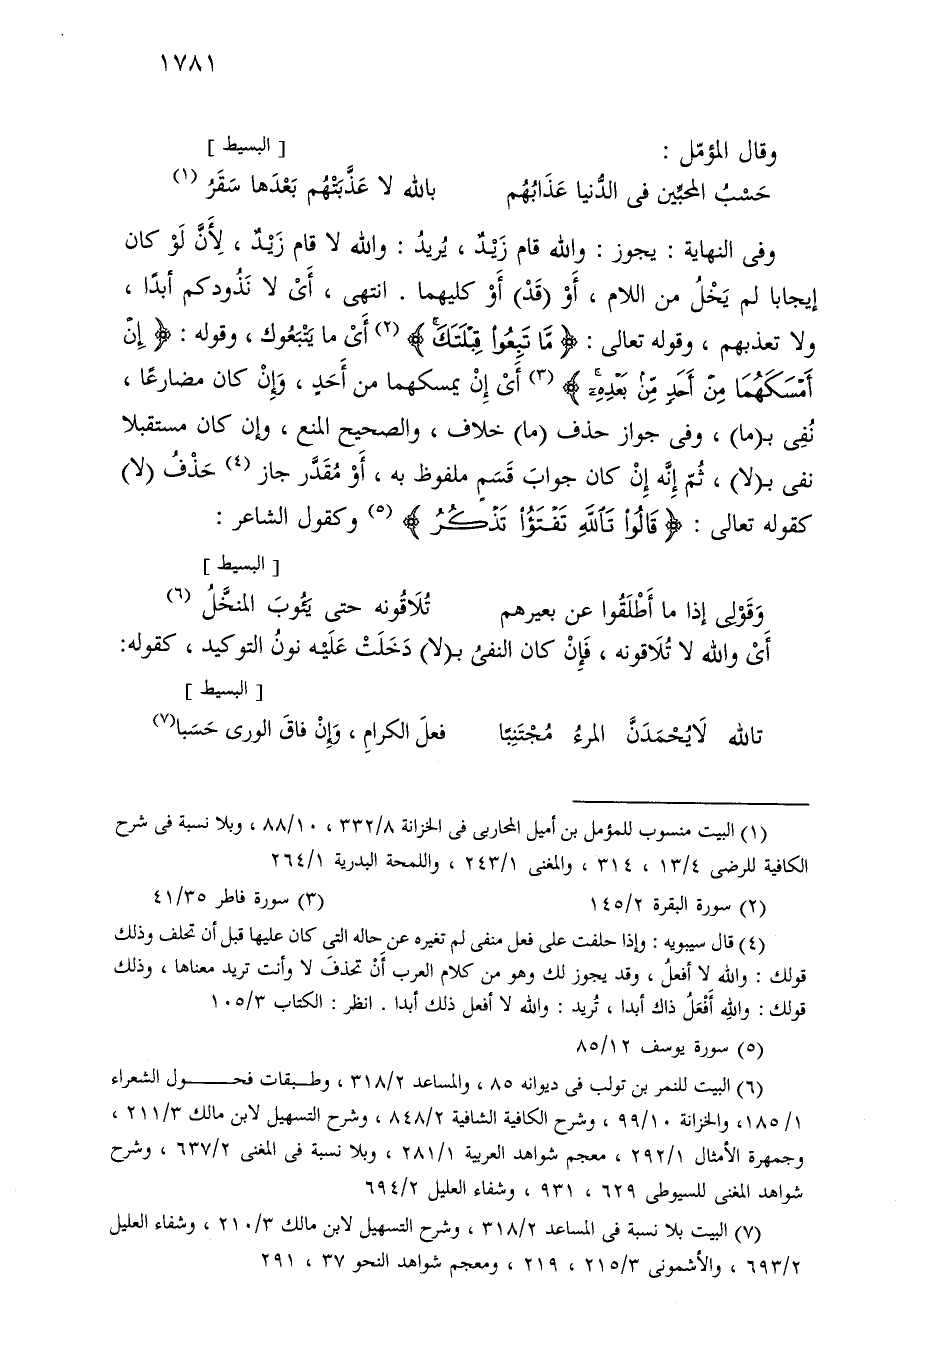 ١٧٨١
وقال المؤمّل : [ البسيط ]
حَسْبُ المحبِّين فى الدُّنيا عَذَابُهُم بالله لا عَذَّبَتْهُم بَعْدَها سَقَرُ (١)
وفى النهاية : يجوز : والله قام زَيْدٌ ، يُريدُ : والله لا قام زَيْدٌ ، لِأَنَّ لَوْ كان
إيجابا لم يَخْلُ من اللام ، أَوْ (قَدْ) أَوْ كليهما . انتهى ، أَىْ لا نَذُودكم أبدًا ،
ولا تعذبهم ، وقوله تعالى : ﴿ مَّا تَبِعُواْ قِبْلَتَكَ ﴾ (٢) أَىْ ما يَتْبَعُوك ، وقوله : ﴿ إِنْ
أَمْسَكَهُمَا مِنْ أَحَدٍ مِّنۢ بَعْدِهِۦٓ ﴾ (٣) أَىْ إِنْ يمسكهما من أَحَدٍ ، وَإِنْ كان مضارعًا ،
نُفِى بـ(ما) ، وفى جواز حذف (ما) خلاف ، والصحيح المنع ، وإن كان مستقبلا
نفى بـ(لا) ، ثُمّ إِنَّه إِنْ كان جوابَ قَسَمٍ ملفوظ به ، أَوْ مُقَدَّر جاز (٤) حَذْفُ (لا)
كقوله تعالى : ﴿ قَالُواْ تَٱللَّهِ تَفْتَؤُاْ تَذْكُرُ ﴾ (٥) وكقول الشاعر :
[ البسيط ]
وَقَوْلِى إذا ما أَطْلَقُوا عن بعيرهم تُلَاقُونه حتى يَئُوبَ المنخَّلُ (٦)
أَىْ والله لا تُلَاقونه ، فَإِنْ كان النفىُ بـ(لا) دَخَلَتْ عَلَيْه نونُ التوكيد ، كقوله:
[ البسيط ]
تالله لَايُحْمَدَنَّ المرءُ مُجْتَنِبًا فعلَ الكرامِ ، وَإِنْ فاقَ الورى حَسَبا(٧)
(١) البيت منسوب للمؤمل بن أميل المحاربى فى الخزانة ٣٣٢/٨ ، ٨٨/١٠ ، وبلا نسبة فى شرح
الكافية للرضى ١٣/٤ ، ٣١٤ ، والمغنى ٢٤٣/١ ، واللمحة البدرية ٢٦٤/١
(٢) سورة البقرة ١٤٥/٢ (٣) سورة فاطر ٤١/٣٥
(٤) قال سيبويه : وإذا حلفت على فعل منفى لم تغيره عن حاله التى كان عليها قبل أن تحلف وذلك
قولك : والله لا أفعلُ ، وقد يجوز لك وهو من كلام العرب أَنْ تحذفَ لا وأنت تريد معناها ، وذلك
قولك : واللهِ أَفْعَلُ ذاك أبدا ، تُريد : والله لا أفعل ذلك أبدا . انظر : الكتاب ١٠٥/٣
(٥) سورة يوسف ٨٥/١٢
(٦) البيت للنمر بن تولب فى ديوانه ٨٥ ، والمساعد ٣١٨/٢ ، وطبقات فحول الشعراء
١٨٥/١، والخزانة ٩٩/١٠ ، وشرح الكافية الشافية ٨٤٨/٢ ، وشرح التسهيل لابن مالك ٢١١/٣ ،
وجمهرة الأمثال ٢٩٢/١ ، معجم شواهد العربية ٢٨١/١ ، وبلا نسبة فى المغنى ٦٣٧/٢ ، وشرح
شواهد المغنى للسيوطى ٦٢٩ ، ٩٣١ ، وشفاء العليل ٦٩٤/٢
(٧) البيت بلا نسبة فى المساعد ٣١٨/٢ ، وشرح التسهيل لابن مالك ٢١٠/٣ ، وشفاء العليل
٦٩٣/٢ ، والأشمونى ٢١٥/٣ ، ٢١٩ ، ومعجم شواهد النحو ٣٧ ، ٢٩١